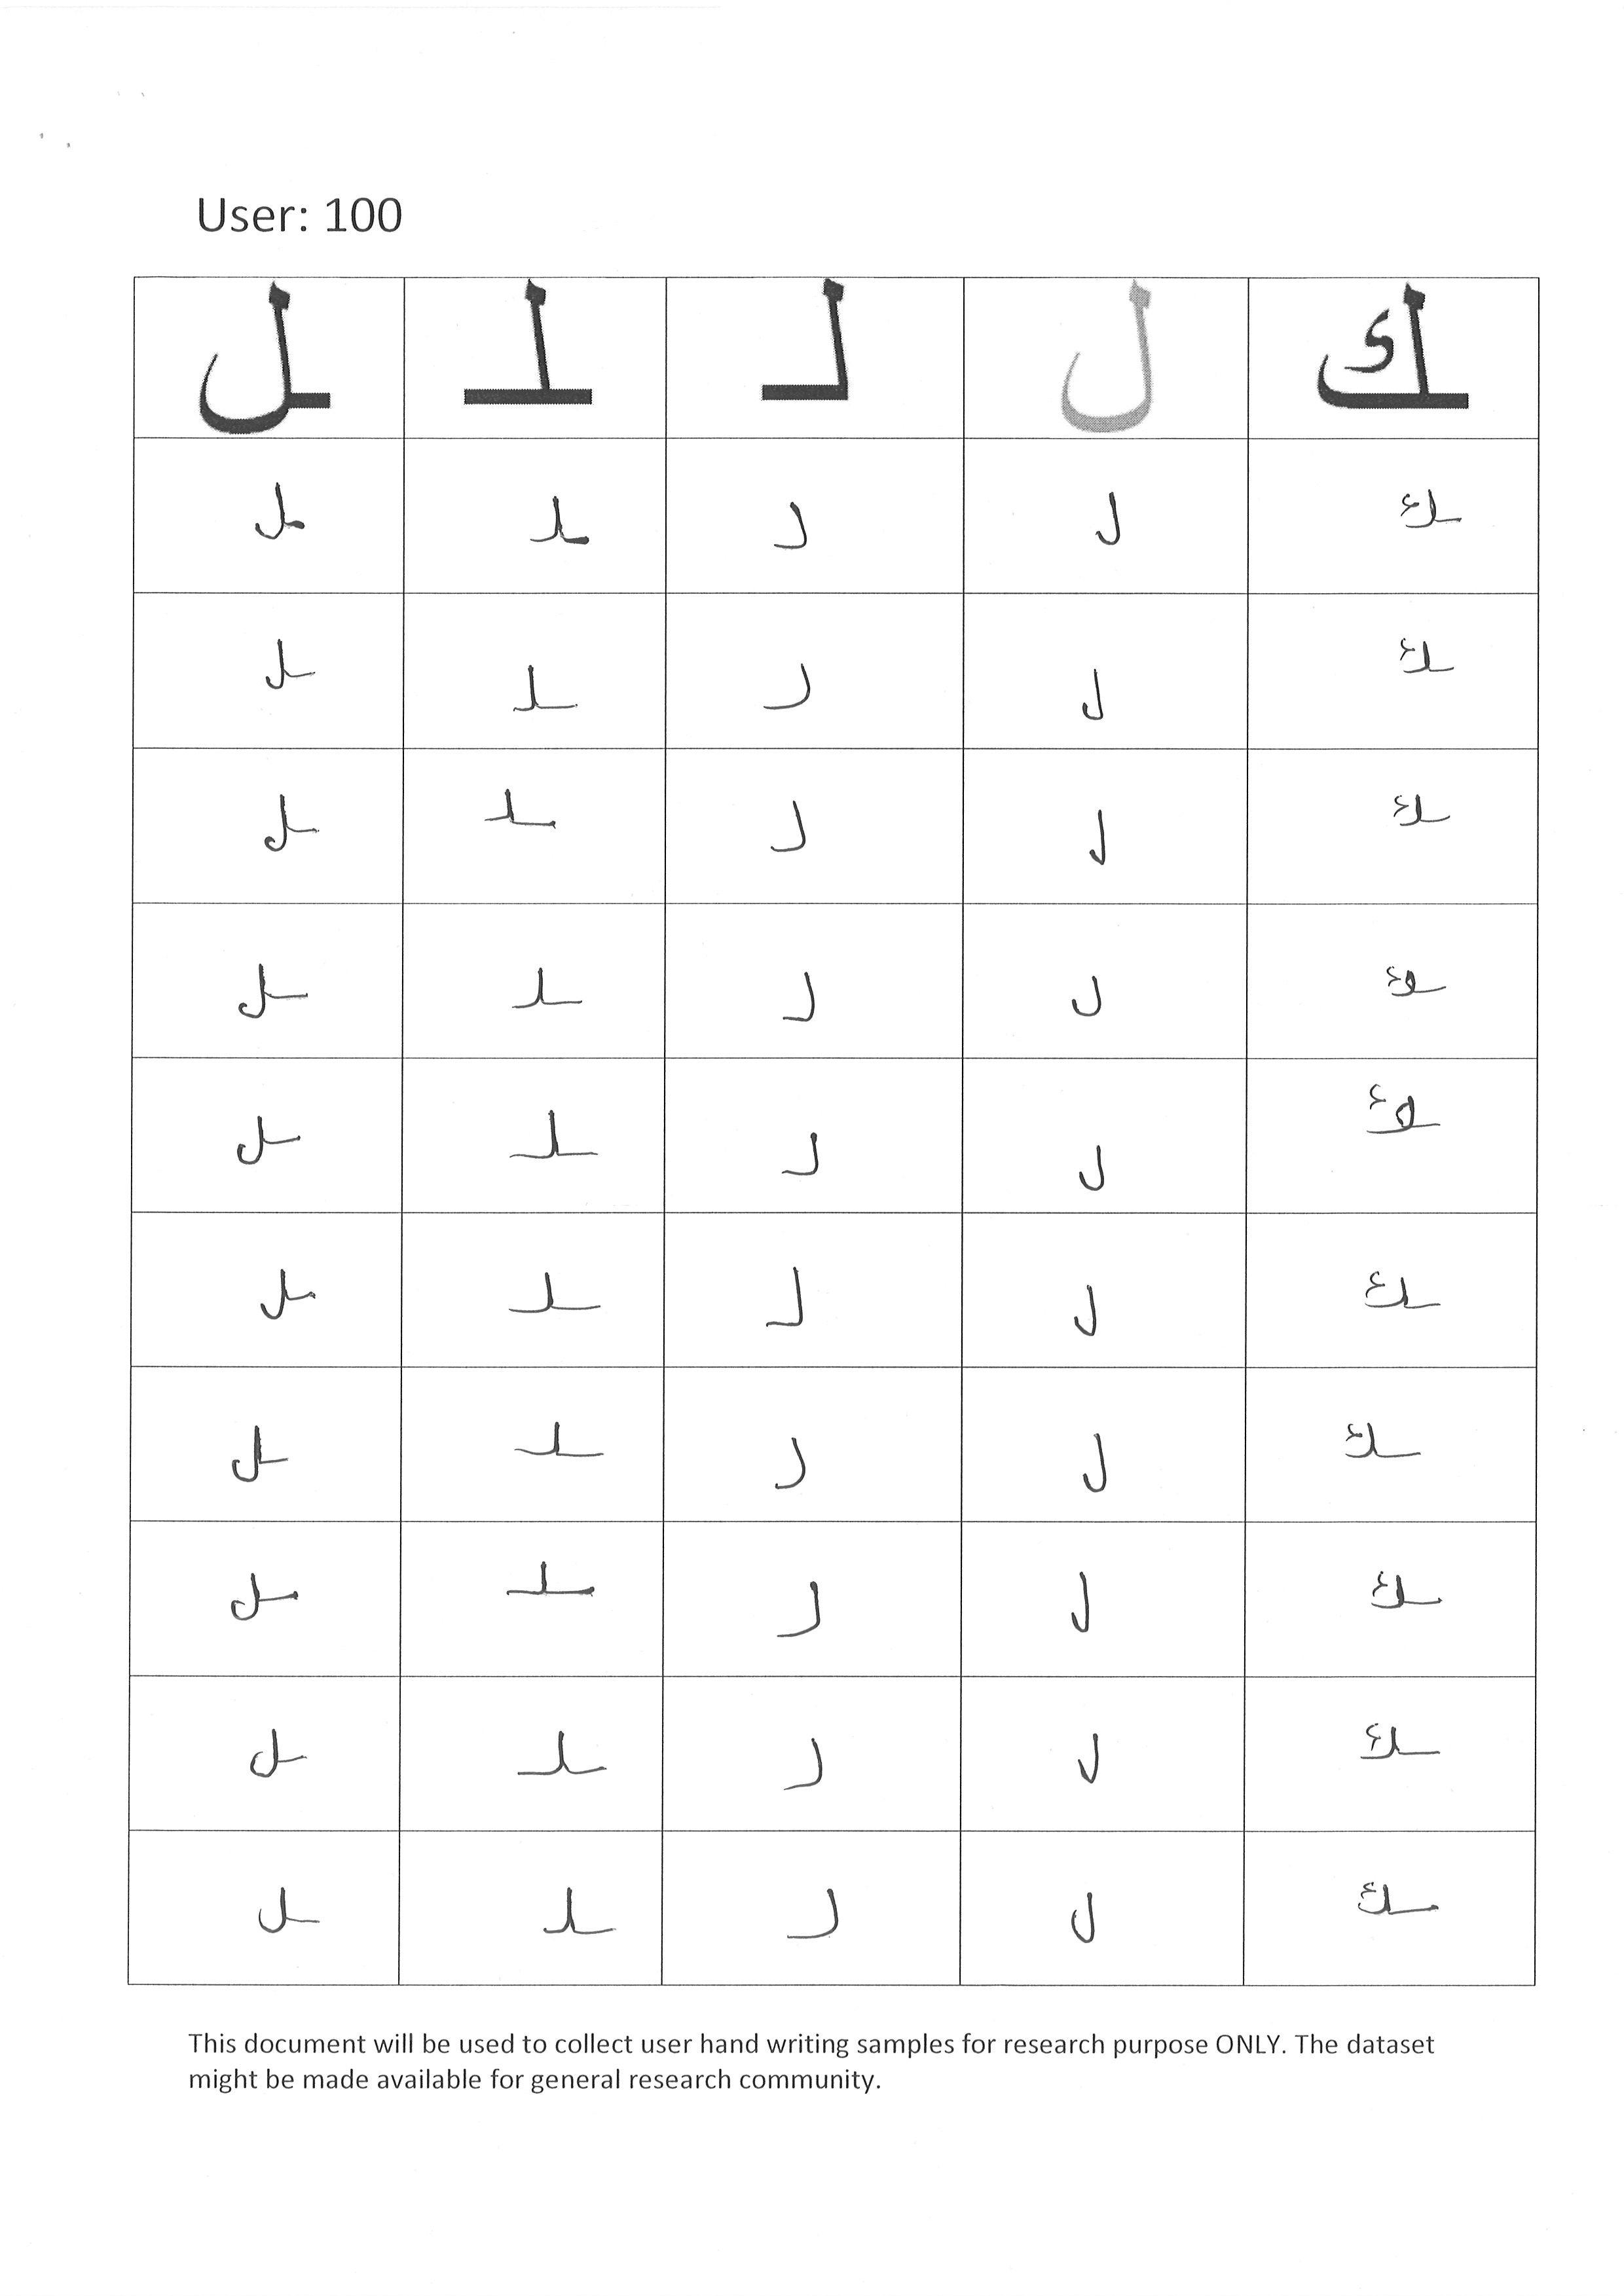 User: 100
ـك ل لـ ـلـ ـل
ـك ل لـ ـلـ ـل
ـك ل لـ ـلـ ـل
ـك ل لـ ـلـ ـل
ـك ل لـ ـلـ ـل
ـك ل لـ ـلـ ـل
ـك ل لـ ـلـ ـل
ـك ل لـ ـلـ ـل
ـك ل لـ ـلـ ـل
ـك ل لـ ـلـ ـل
ـك ل لـ ـلـ ـل
This document will be used to collect user hand writing samples for research purpose ONLY. The dataset
might be made available for general research community.